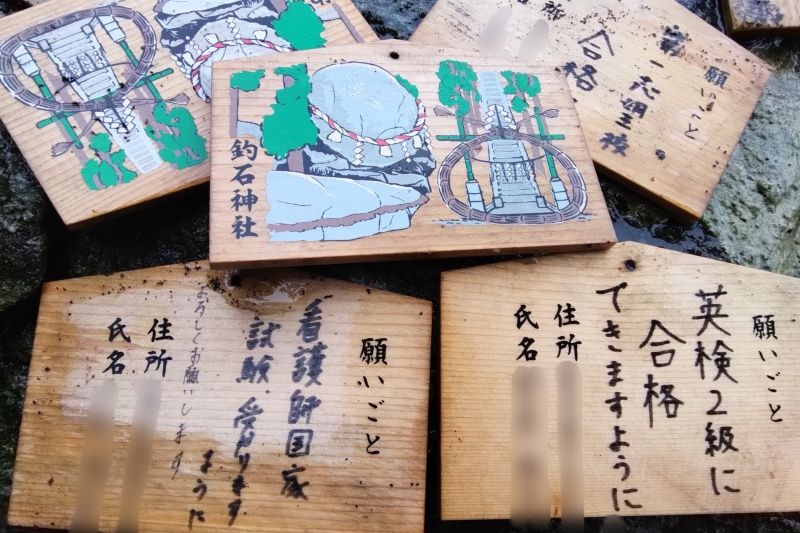 釣石神社
願いごと
第一志望校
合格
願いごと
看護師国家
試験 受かります
ように
よろしくお願いします
住所
氏名
願いごと
英検2級に
合格
できますように
住所
氏名